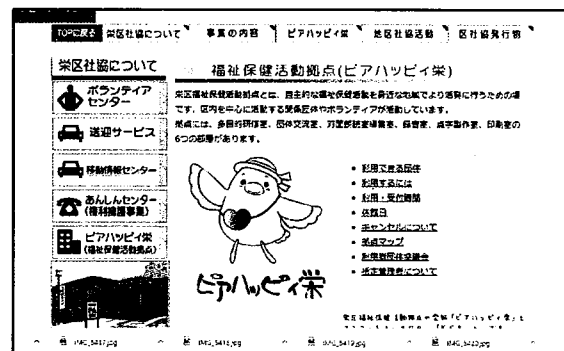 TOPに戻る 栄区社協について 事業の内容 ピアハッピィ栄 地区社協活動 区社協発行物
栄区社協について
ボランティア
センター
送迎サービス
移動情報センター
あんしんセンター
(権利擁護事業)
ピアハッピィ栄
(福祉保健活動拠点)
福祉保健活動拠点(ピアハッピィ栄)
栄区福祉保健活動拠点とは、自主的な福祉保健活動を身近な地域でより活発に行うための場
です。区内を中心に活動する関係団体やボランティアが活動しています。
拠点には、多目的研修室、団体交流室、対面朗読室編集室、録音室、点字製作室、印刷室の
6つの部屋があります。
利用できる団体
利用するには
利用・受付時間
休館日
キャンセルについて
拠点マップ
利用調整団体協議会
指定管理者について
ピアハッピィ栄
IMG_5417.jpg
IMG_5418.jpg
IMG_5419.jpg
IMG_5420.jpg